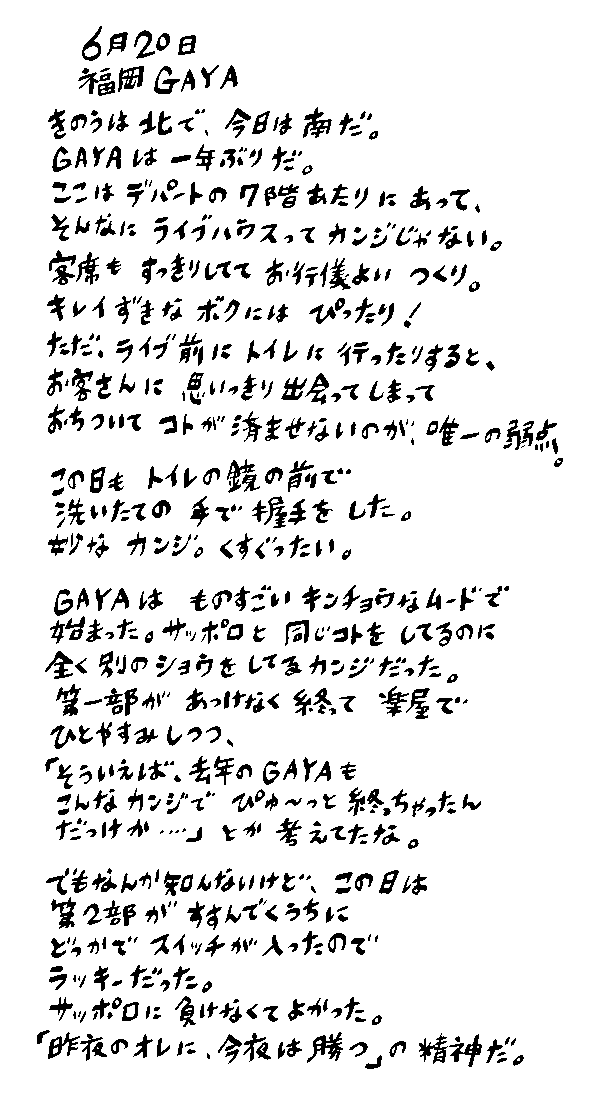 6月20日
福岡 GAYA
きのうは北で、今日は南だ。
GAYAは一年ぶりだ。
ここはデパートの7階あたりにあって、
そんなにライブハウスってカンジじゃない。
客席もすっきりしててお行儀よいつくり。
キレイずきなボクにはぴったり！
ただ、ライブ前にトイレに行ったりすると、
お客さんに思いっきり出会ってしまって
おちついてコトが済ませないのが、唯一の弱点。
この日もトイレの鏡の前で
洗いたての手で握手をした。
妙なカンジ。くすぐったい。
GAYAはものすごいキンチョウなムードで
始まった。サッポロと同じコトをしてるのに
全く別のショウをしてるカンジだった。
第一部があっけなく終って楽屋で
ひとやすみしつつ、
「そういえば、去年のGAYAも
こんなカンジでぴゅ〜っと終っちゃったん
だっけか……」とか考えてたな。
でもなんか知んないけど、この日は
第2部がすすんでくうちに
どっかでスイッチが入ったので
ラッキーだった。
サッポロに負けなくてよかった。
「昨夜のオレに、今夜は勝つ」の精神だ。